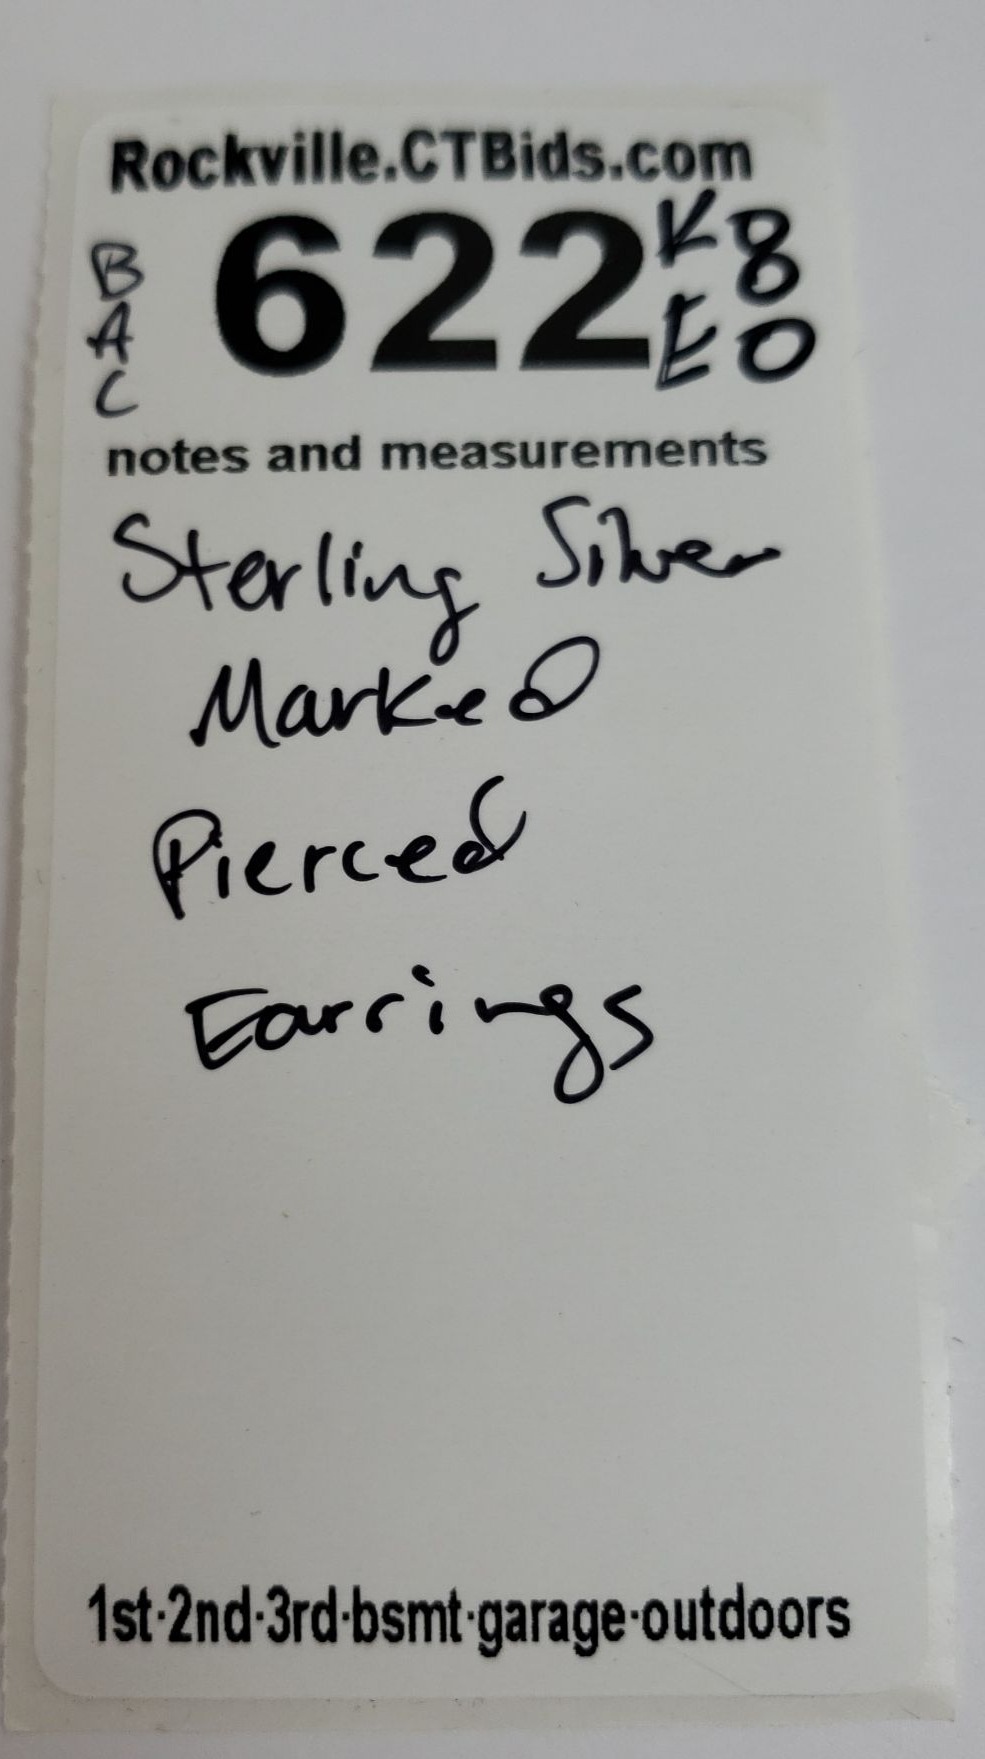 Rockville.CTBids.com
BAC 622 K8
E0
notes and measurements
Sterling Silver
Marked
Pierced
Earrings
1st·2nd·3rd·bsmt·garage·outdoors